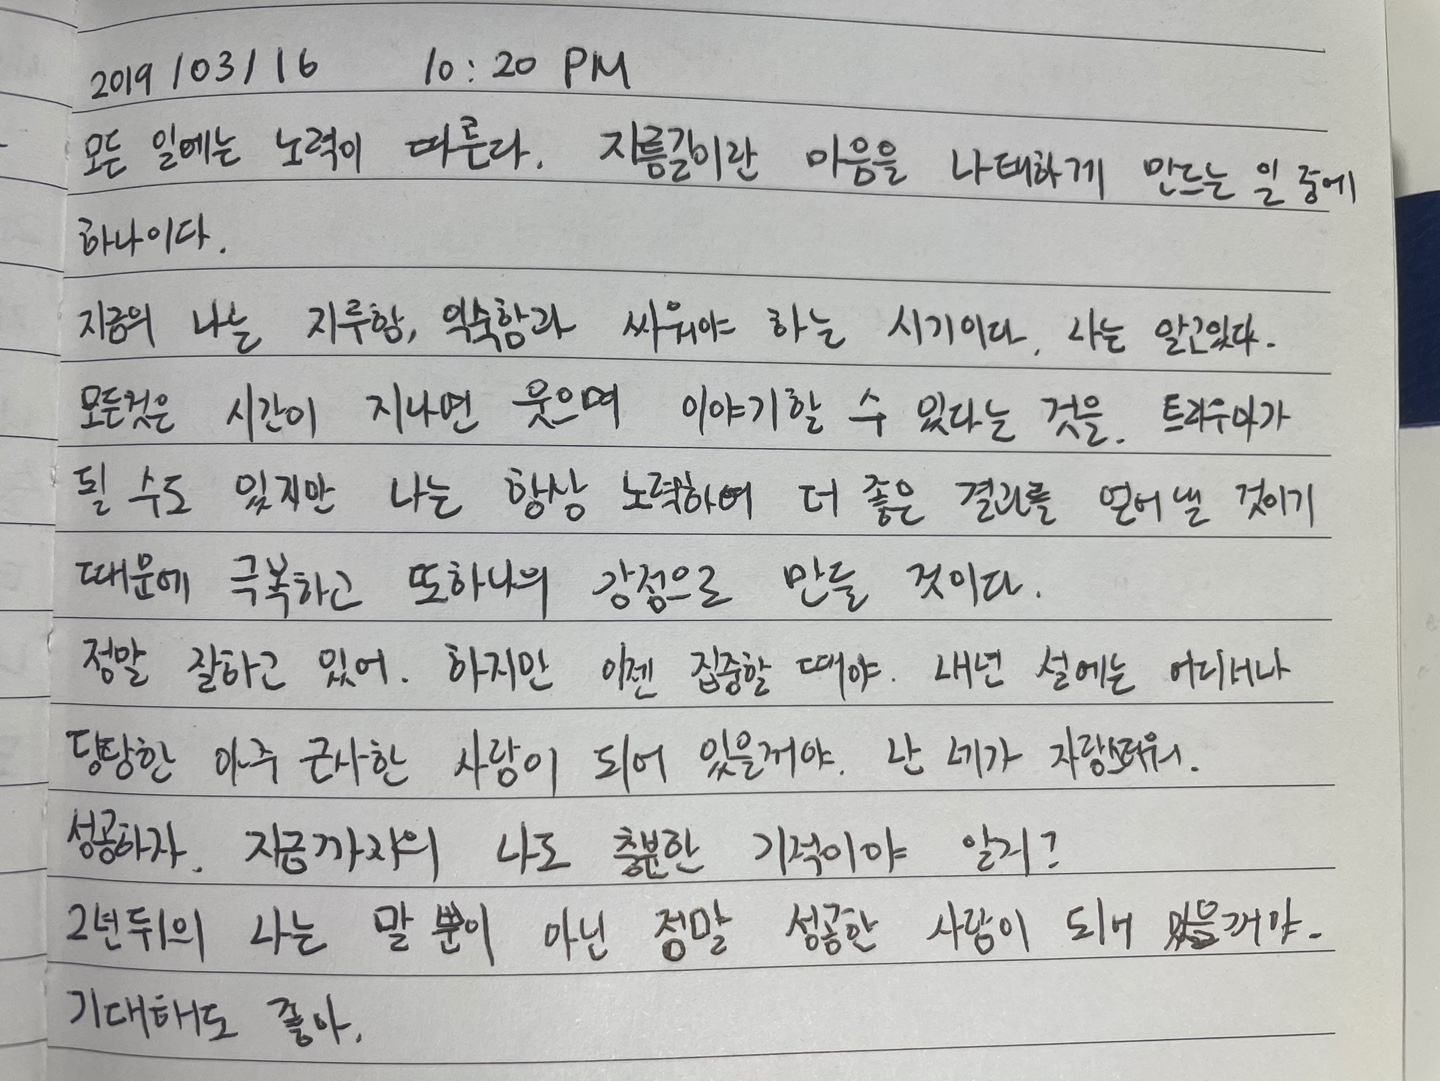 2019/03/16 10:20 PM
모든 일에는 노력이 따른다. 지름길이란 마음을 나태하게 만드는 일 중에
하나이다.
지금의 나는 지루함, 익숙함과 싸워야 하는 시기이다. 나는 알고있다.
모든것은 시간이 지나면 웃으며 이야기할 수 있다는 것을. 트라우마가
될 수도 있지만 나는 항상 노력하여 더 좋은 결과를 얻어 낼 것이기
때문에 극복하고 또하나의 강점으로 만들 것이다.
정말 잘하고 있어. 하지만 이젠 집중할 때야. 내년 설에는 어디서나
당당한 아주 근사한 사람이 되어 있을꺼야. 난 네가 자랑스러워.
성공하자. 지금까지의 나도 충분한 기적이야 알지?
2년뒤의 나는 말 뿐이 아닌 정말 성공한 사람이 되어 있을꺼야.
기대해도 좋아.